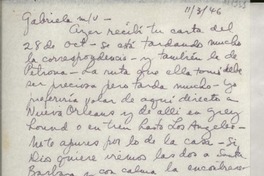 11/3/46
Gabriela m/v -
Ayer recibí tu carta del
28 de oct - se está tardando mucho
la correspondencia - y también la de
Petrona - La ruta que ella tomó debe
ser preciosa pero tarda mucho - Yo
preferiría volar de aquí directo a
Nueva Orleans y de allí en grey
hound o en tren hasta Los Angeles -
No te apures por lo de la casa - Si
Dios quiere iremos las dos a Santa
Bárbara y con calma la encontrare